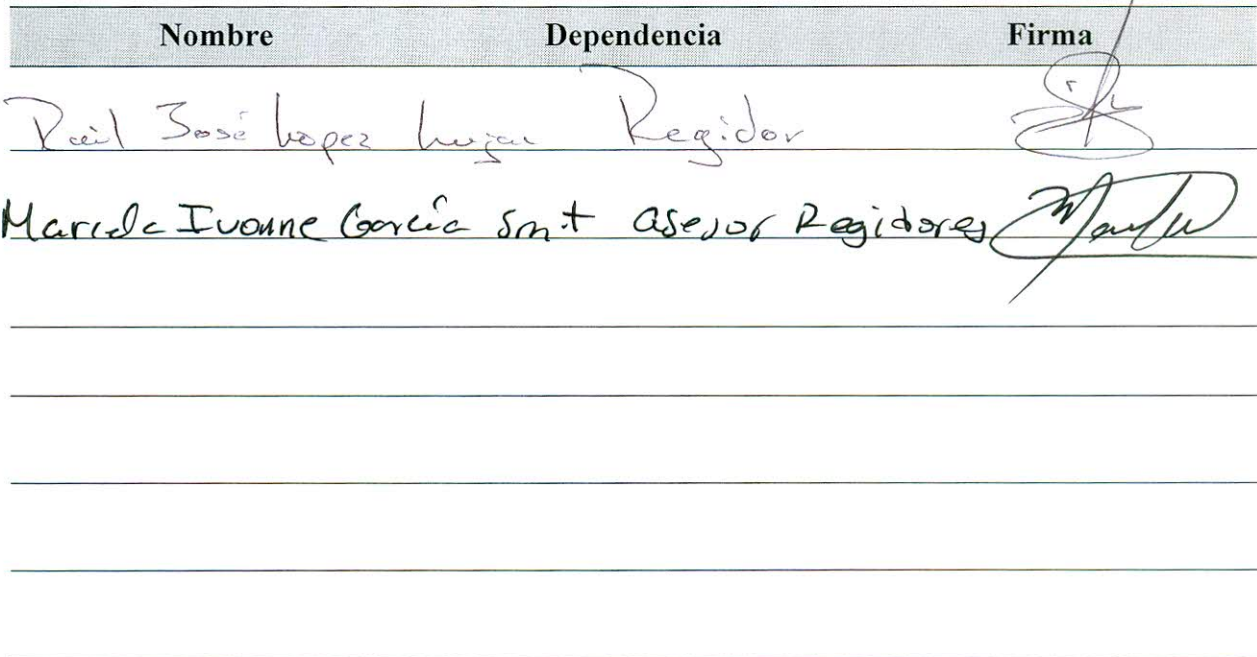 Nombre Dependencia Firma
Raúl José Lopez Lujan Regidor
Marcela Ivonne García Smit Asesor Regidores